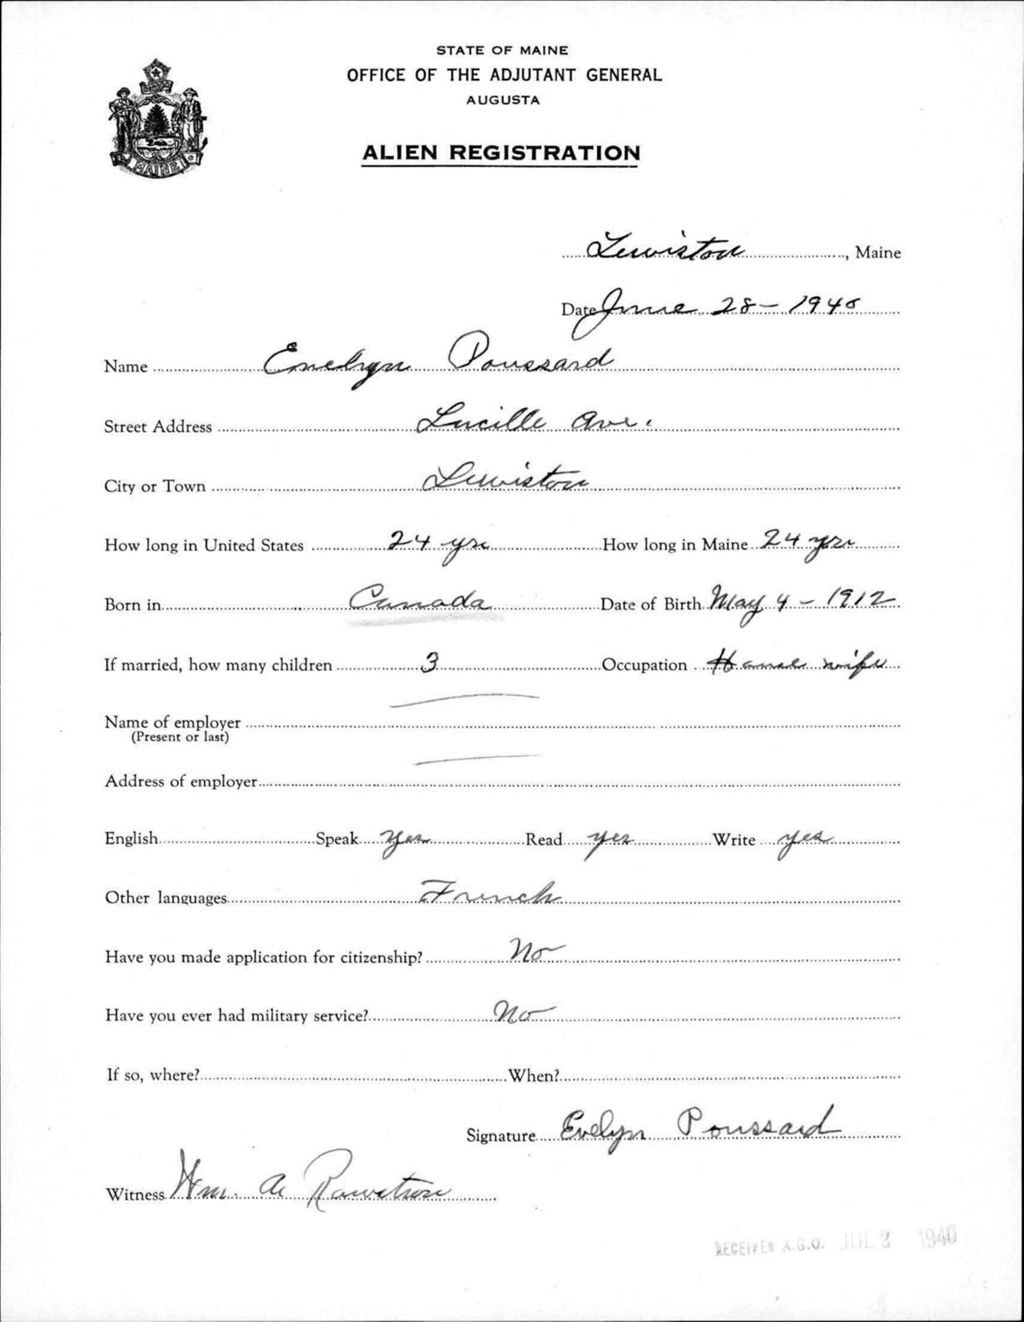 STATE OF MAINE
OFFICE OF THE ADJUTANT GENERAL
AUGUSTA
ALIEN REGISTRATION
MAINE
Lewiston, Maine
Date June 28 - 1940
Name Evelyn Poussard
Street Address Lucille Ave.
City or Town Lewiston
How long in United States 24 yrs How long in Maine 24 yrs
Born in Canada Date of Birth May 4 - 1912
If married, how many children 3 Occupation House wife
Name of employer
(Present or last)
Address of employer
English Speak yes Read yes Write yes
Other languages French
Have you made application for citizenship? No
Have you ever had military service? No
If so, where? When?
Signature Evelyn Poussard
Witness Wm. A
RECEIVED A.G.O. JUL 2 1940